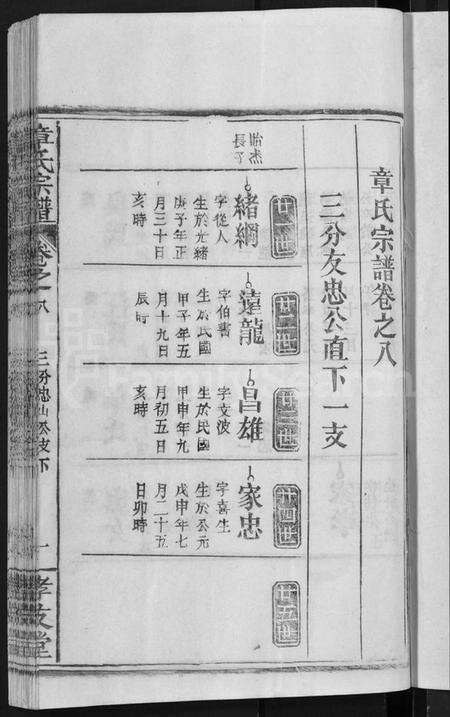 章氏宗譜卷之八
三分友忠公直下一支
廿一世
長子
緒綱
字從人
生於光緒
庚子年正
月三十日
亥時
廿二世
遠龍
字伯書
生於民國
甲子年五
月十九日
辰時
廿三世
昌雄
字文波
生於民國
甲申年九
月初五日
亥時
廿四世
家忠
字喜生
生於公元
戊申年七
月二十五
日卯時
廿五世
章氏宗譜
卷之八
三分忠山公支下
一
孝友堂